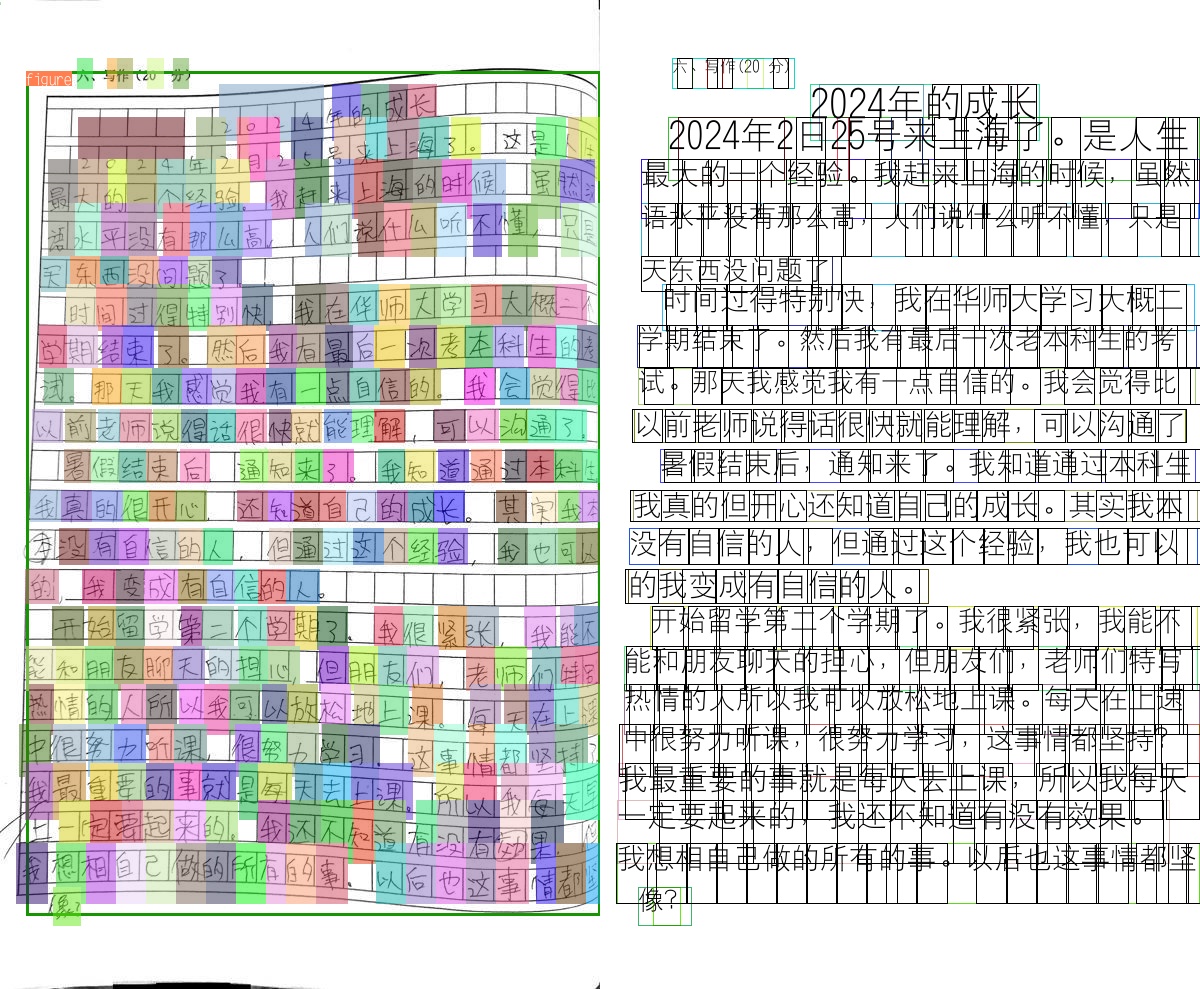 figure
六、写作(20 分)
2024年的成长
2024年2月25号来上海了。这是
最大的一个经验。我赶来上海的时候,虽然
语水平没有那么高,人们说什么听不懂,只是
买东西没问题了.
时间过得特别快,我在华师大学习大概二个
学期结束了。然后我有最后一次考本科生的考
试。那天我感觉我有一点自信的。我会觉得比
以前老师说得话很快就能理解,可以沟通了.
暑假结束后,通知来了。我知道通过本科生
我真的很开心,还知道自己的成长。其实我本
没有自信的人,但通过这个经验,我也可以
的,我变成有自信的人。
开始留学第二个学期了。我很紧张,我能不
能和朋友聊天的担心,但朋友们,老师们特别
热情的人所以我可以放松地上课。每天在上课
中很努力听课,很努力学习.这事情都坚持了
我最重要的事就是每天去上课。所以我每天
上一定要起来的。我还不知道有没有效果.
我想相自己做的所有的事。以后也这事情都坚
六、写作(20 分)
2024年的成长
2024年2日25号来上海了。是人生
最大的一个经验。我赶来上海的时候,虽然
语水平没有那么高,人们说什么听不懂,只是
天东西没问题了
时间过得特别快,我在华师大学习大概二
学期结束了。然后我有最后一次老本科生的考
试。那天我感觉我有一点自信的。我会觉得比
以前老师说得话很快就能理解,可以沟通了
暑假结束后,通知来了。我知道通过本科生
我真的但开心还知道自己的成长。其实我本
没有自信的人,但通过这个经验,我也可以
的我变成有自信的人。
开始留学第二个学期了。我很紧张,我能不
能和朋友聊天的担心,但朋友们,老师们特写
热情的人所以我可以放松地上课。每天在上速
中很努力听课,很努力学习,这事情都坚持?
我最重要的事就是每天去上课,所以我每天
一定要起来的,我还不知道有没有效果。
我想相自己做的所有的事。以后也这事情都坚
像?